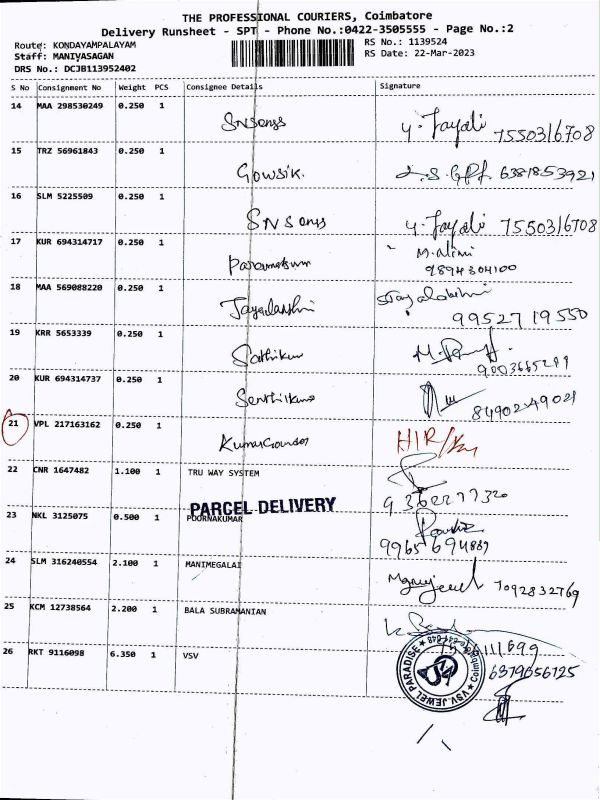 THE PROFESSIONAL COURIERS, Coimbatore
Delivery Runsheet - SPT - Phone No.:0422-3505555 - Page No.:2
Route: KONDAYAMPALAYAM RS No.: 1139524
Staff: MANIYASAGAN RS Date: 22-Mar-2023
DRS No.: DCJB113952402
S No Consignment No Weight PCS Consignee Details Signature
14 MAA 298530249 0.250 1 SNSons Y. Jayali 7550316708
15 TRZ 56961843 0.250 1 Gowsik. 6381853921
16 SLM 5225509 0.250 1 SNSons Y. Jayali 7550316708
17 KUR 694314717 0.250 1 M. Alini
9894304100
18 MAA 569088220 0.250 1
99527 19550
19 KRR 5653339 0.250 1 Sathikum
20 KUR 694314737 0.250 1 Senthilkumar
21 VPL 217163162 0.250 1 KumarGounder HIR/
22 CNR 1647482 1.100 1 TRU WAY SYSTEM
PARCEL DELIVERY
23 NKL 3125075 0.500 1 POORNAKUMAR
24 SLM 316240554 2.100 1 MANIMEGALAI 7092832769
25 KCM 12738564 2.200 1 BALA SUBRAMANIAN
26 RKT 9116098 6.350 1 VSV 6379656725
VSV. JEWEL PARADISE